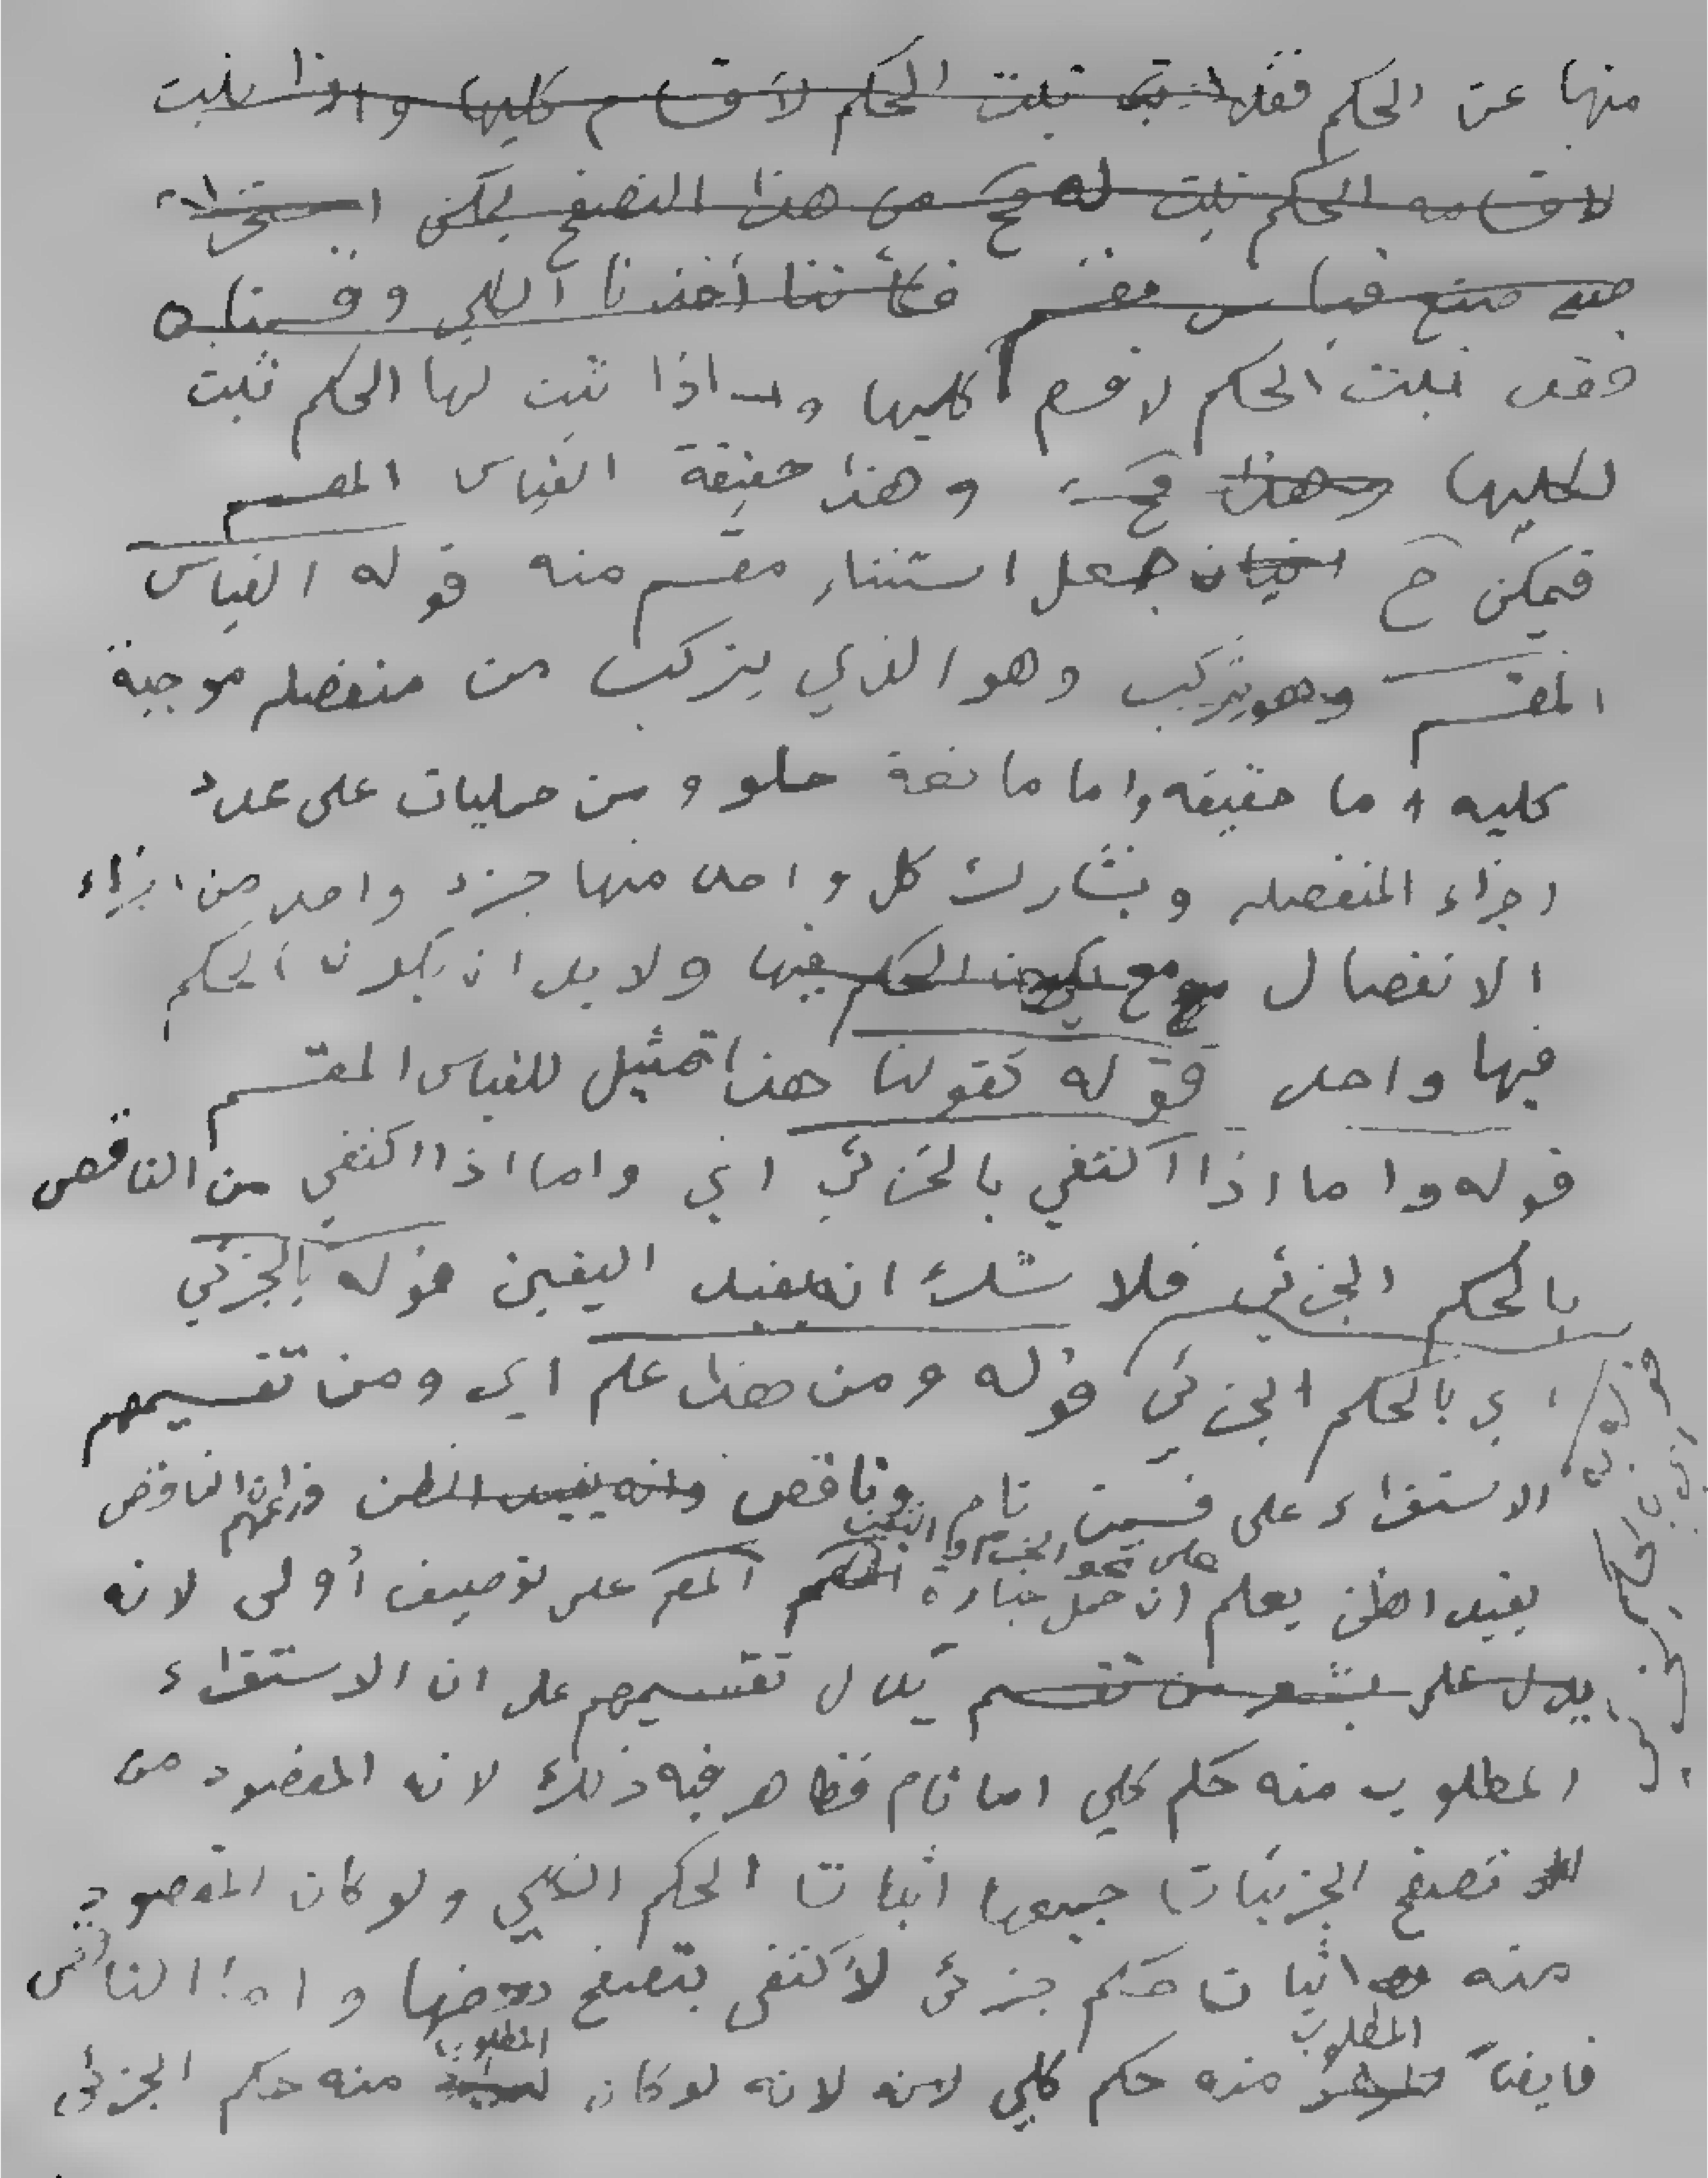 منها عن الحكم فقد ثبت الحكم لأقسام كليها واذا ثبت
لاقسامه الحكم ثبت له فح من هذا التصفح يمكن استخراج
منه صنع قياس مقسم فكأننا أخذنا الكلي وقسمناه
فقد ثبت الحكم لاقسام كليها واذا ثبت لها الحكم ثبت
لكليها وهذا وهذا حقيقة القياس المقسم
فيمكن ح جعل استثناء مقسم منه قوله القياس
المقسم وهو يتركب وهو الذي يتركب من منفصله موجبة
كليه اما حقيقه واما مانعة خلو ومن حمليات على عدد
اجزاء المنفصله وبتشارك كل واحد منها جزء واحد من اجزاء
الانفصال مع يكون الحكم فيها ولا بد ان يكون الحكم
فيها واحد قوله كقولنا هذا تمثيل للقياس المقسم
قوله واما اذا اكتفي بالجزئي اي واما اذا اكتفي من الناقص
بالحكم الجزئي فلا شك انه يفيد اليقين قوله بالجزئي
اي بالحكم الجزئي قوله ومن هذا علم اي ومن تقسيمهم
الاستقراء على قسمين تام وناقص وانه يفيد الظن وزعمهم ان الناقص
يفيد الظن يعلم ان حمل عبارة المصر على توصيف أولى لانه
يدل على يشعر من تقسيم يدل تقسيمهم على ان الاستقراء
المطلوب منه حكم كلي اما تام فظاهر فيه ذلك لانه المقصود من
تصفح الجزئيات جميعها اثبات الحكم الكلي ولو كان المقصود
منه اثبات حكم جزئي لأكتفى بتصفح بعضها واما الناقص
فايضاً المطلوب منه حكم كلي لانه لو كان المطلوب منه حكم الجزئي